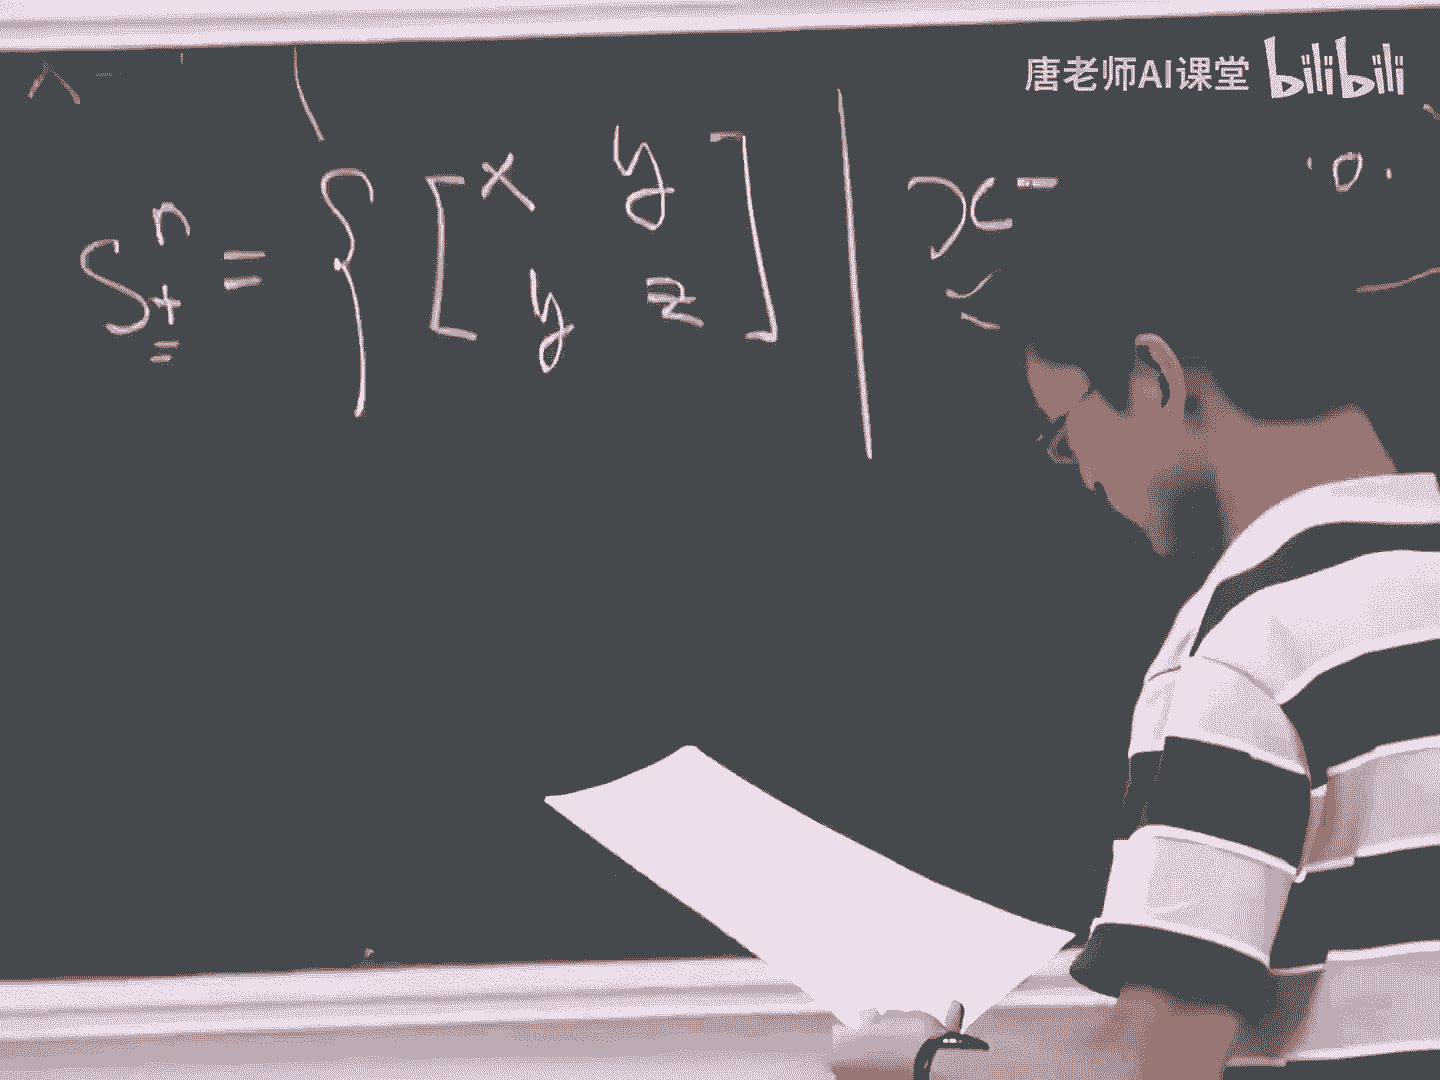 唐老师AI课堂 bilibili
S₊ⁿ = { [ x y
y z ] | x
0